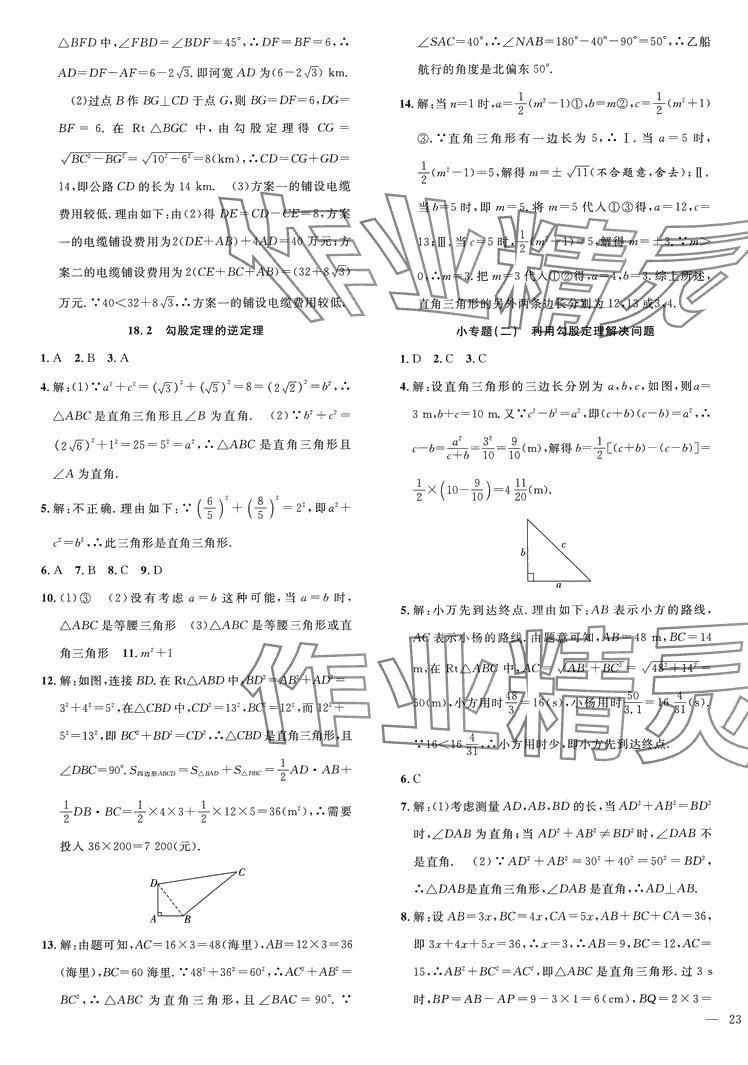 △BFD中,∠FBD=∠BDF=45°,∴DF=BF=6,∴
AD=DF-AF=6-2√3.即河宽AD为(6-2√3) km.
(2)过点B作BG⊥CD于点G,则BG=DF=6,DG=
BF=6.在Rt△BGC中,由勾股定理得CG=
√(BC²-BG²)=√(10²-6²)=8(km),∴CD=CG+GD=
14,即公路CD的长为14 km. (3)方案一的铺设电缆
费用较低.理由如下:由(2)得DE=CD-CE=8,方案
一的电缆铺设费用为2(DE+AB)+4AD=40万元;方
案二的电缆铺设费用为2(CE+BC+AB)=(32+8√3)
万元.∵40<32+8√3,∴方案一的铺设电缆费用较低.
18.2 勾股定理的逆定理
1.A 2.B 3.A
4.解:(1)∵a²+c²=(√3)²+(√5)²=8=(2√2)²=b²,∴
△ABC是直角三角形且∠B为直角. (2)∵b²+c²=
(2√6)²+1²=25=5²=a²,∴△ABC是直角三角形且
∠A为直角.
5.解:不正确.理由如下:∵(6/5)²+(8/5)²=2²,即a²+
c²=b²,∴此三角形是直角三角形.
6.A 7.B 8.C 9.D
10.(1)③ (2)没有考虑a=b这种可能,当a=b时,
△ABC是等腰三角形 (3)△ABC是等腰三角形或直
角三角形 11.m²+1
12.解:如图,连接BD.在Rt△ABD中,BD²=AB²+AD²=
3²+4²=5²,在△CBD中,CD²=13²,BC²=12²,而12²+
5²=13²,即BC²+BD²=CD²,∴△CBD是直角三角形且
∠DBC=90°.S四边形ABCD=S△BAD+S△DBC=1/2AD·AB+
1/2DB·BC=1/2×4×3+1/2×12×5=36(m²),∴需要
投入36×200=7 200(元).
D
C
A
B
13.解:由题可知,AC=16×3=48(海里),AB=12×3=36
(海里),BC=60海里.∵48²+36²=60²,∴AC²+AB²=
BC²,∴△ABC为直角三角形,且∠BAC=90°.∵
∠SAC=40°,∴∠NAB=180°-40°-90°=50°,∴乙船
航行的角度是北偏东50°.
14.解:当n=1时,a=1/2(m²-1)①,b=m②,c=1/2(m²+1)
③.∵直角三角形有一边长为5,∴Ⅰ.当a=5时,
1/2(m²-1)=5,解得m=±√11(不合题意,舍去);Ⅱ.
当b=5时,即m=5.将m=5代入①③得,a=12,c=
13;Ⅲ.当c=5时,1/2(m²+1)=5,解得m=±3.∵m>
0,∴m=3.把m=3代入①②得,a=4,b=3.综上所述,
直角三角形的另外两条边长分别为12,13或3,4.
小专题(二) 利用勾股定理解决问题
1.D 2.C 3.C
4.解:设直角三角形的三边长分别为a,b,c,如图,则a=
3 m,b+c=10 m.又∵c²-b²=a²,即(c+b)(c-b)=a²,∴
c-b=a²/(c+b)=3²/10=9/10(m),解得b=1/2[(c+b)-(c-b)]=
1/2×(10-9/10)=4 11/20(m).
b
c
a
5.解:小万先到达终点.理由如下:AB表示小方的路线,
AC表示小杨的路线.由题意可知,AB=48 m,BC=14
m,在Rt△ABC中,AC=√(AB²+BC²)=√(48²+14²)=
50(m),小方用时48/3=16(s),小杨用时50/3.1=16 4/31(s).
∵16<16 4/31,∴小方用时少,即小方先到达终点.
6.C
7.解:(1)考虑测量AD,AB,BD的长,当AD²+AB²=BD²
时,∠DAB为直角;当AD²+AB²≠BD²时,∠DAB不
是直角. (2)∵AD²+AB²=30²+40²=50²=BD²,
∴△DAB是直角三角形,∠DAB是直角,∴AD⊥AB.
8.解:设AB=3x,BC=4x,CA=5x,AB+BC+CA=36,
即3x+4x+5x=36,∴x=3,∴AB=9,BC=12,AC=
15,∴AB²+BC²=AC²,即△ABC是直角三角形.过3 s
时,BP=AB-AP=9-3×1=6(cm),BQ=2×3=
— 23
作业精灵
作业精灵